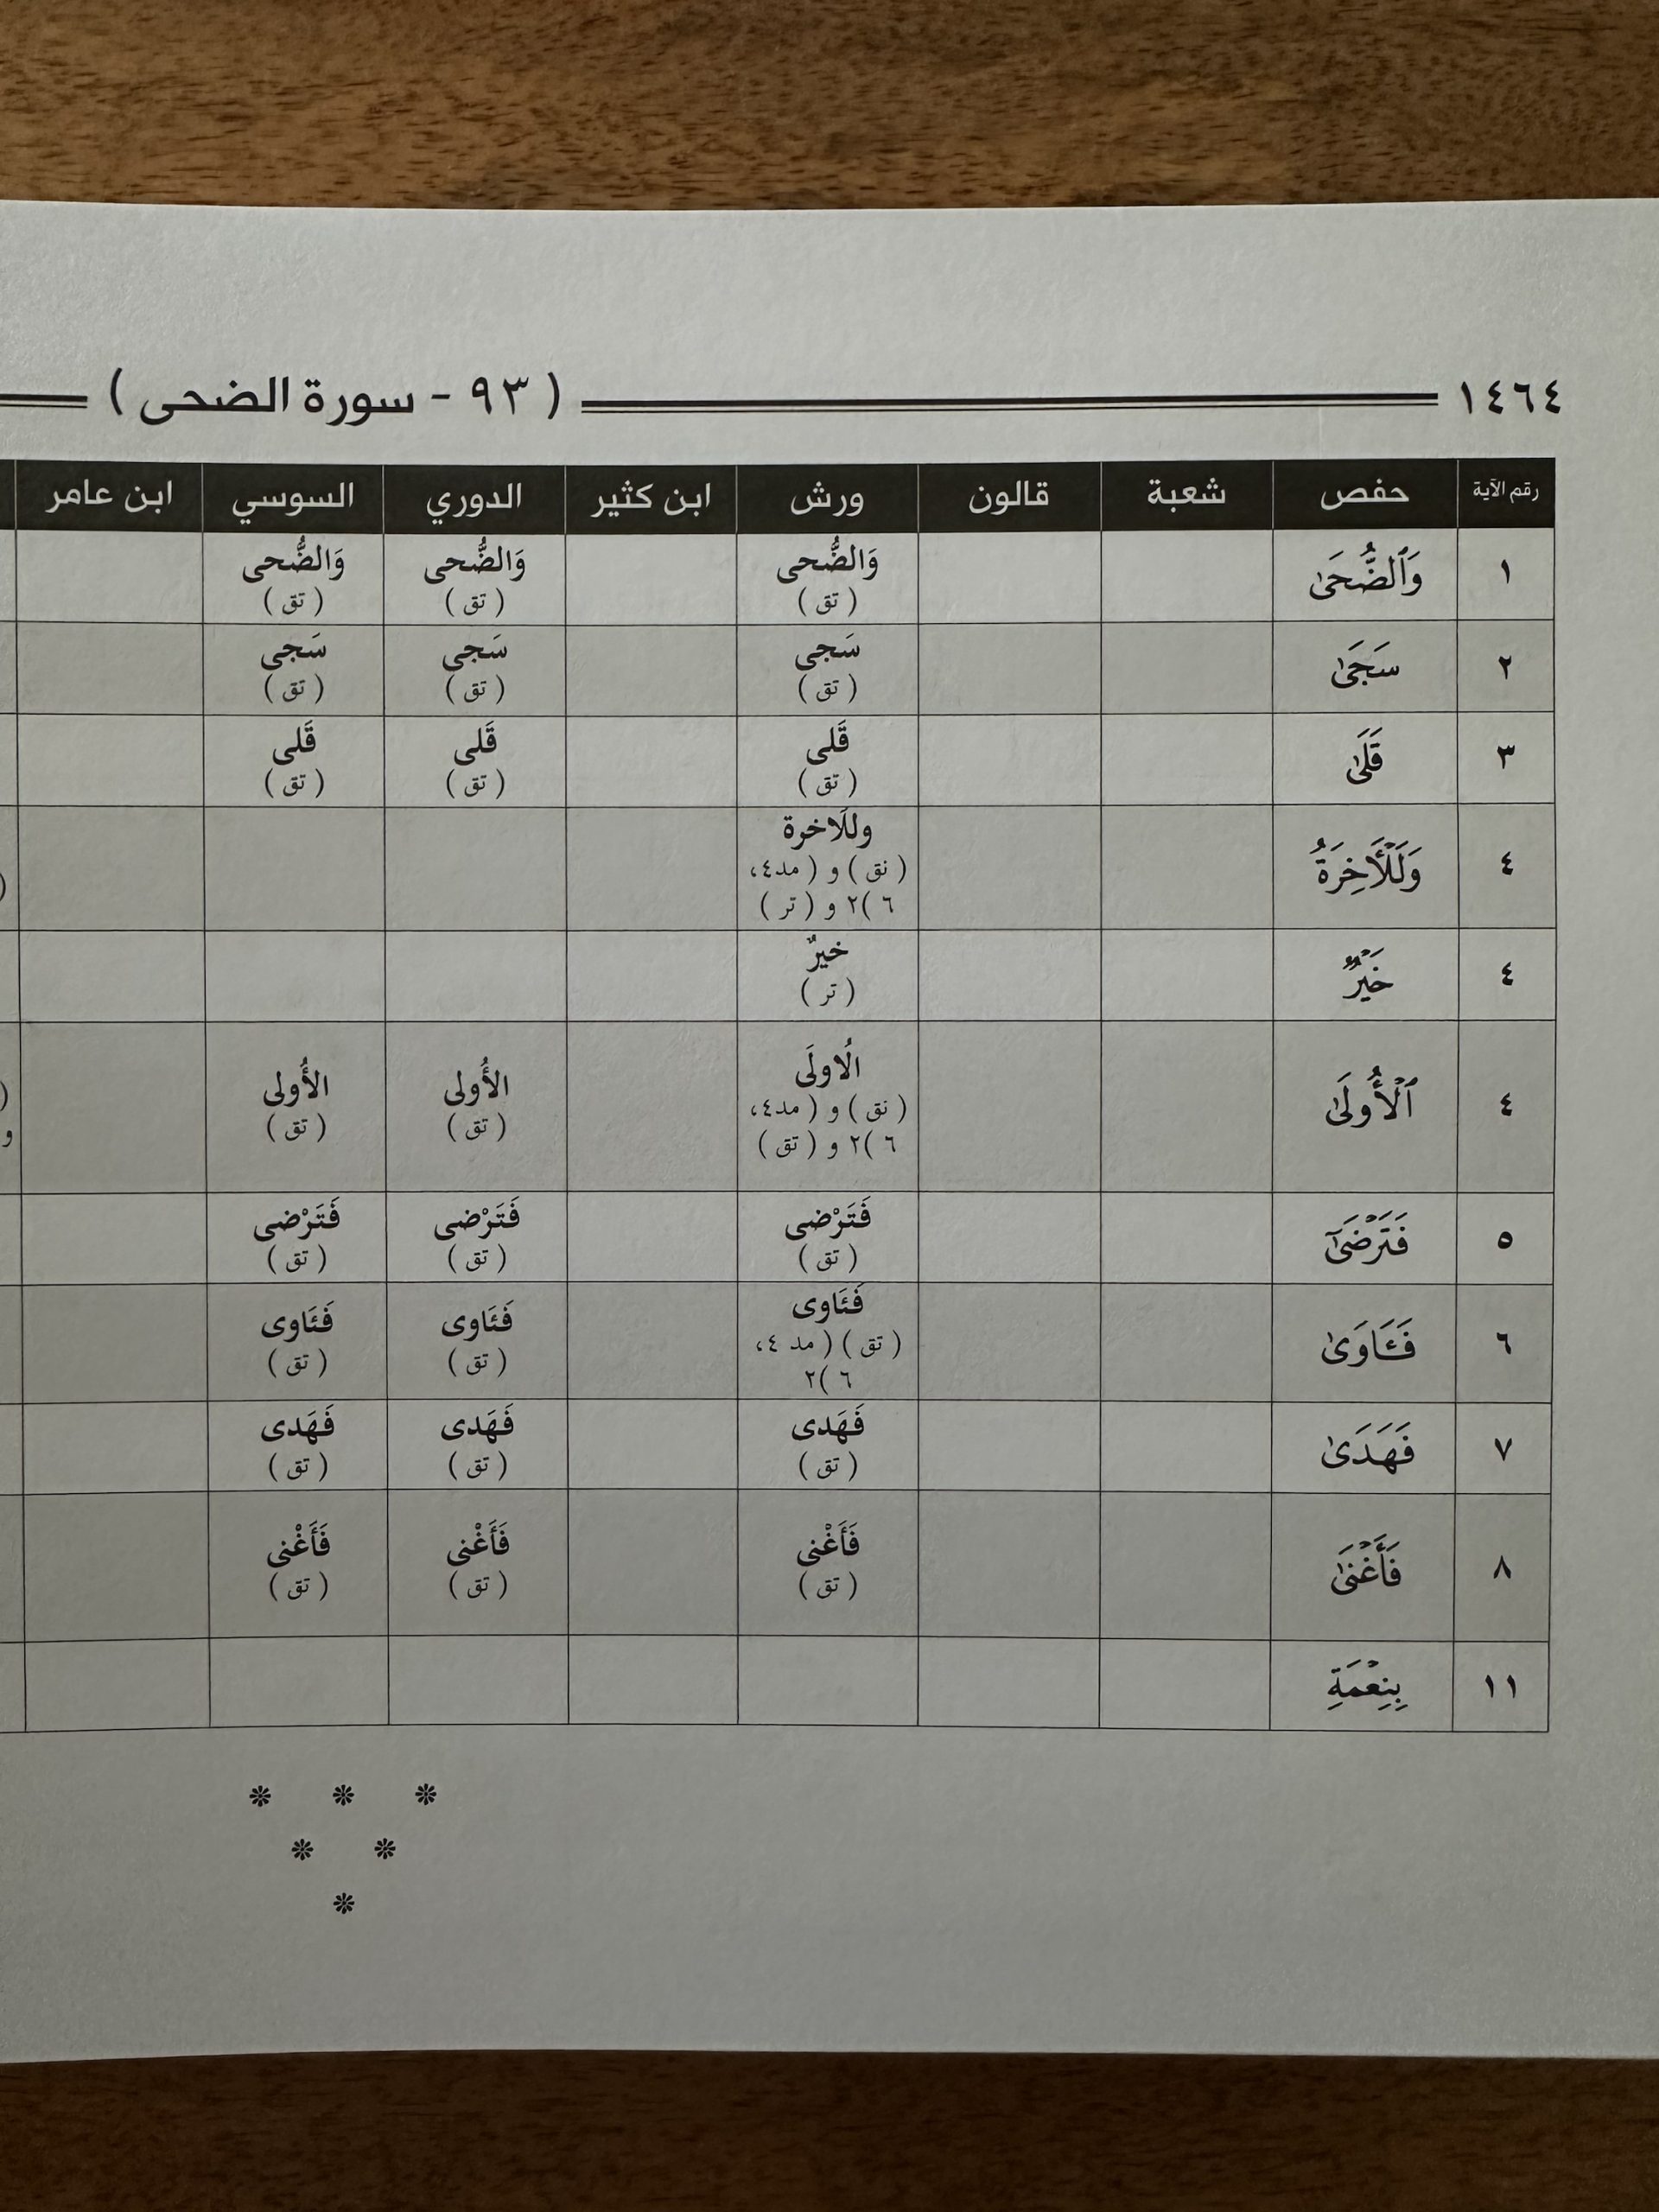 ١٤٦٤ ( ٩٣ - سورة الضحى )
رقم الآية حفص شعبة قالون ورش ابن كثير الدوري السوسي ابن عامر
١ وَٱلضُّحَىٰ وَالضُّحى وَالضُّحى وَالضُّحى
( تق ) ( تق ) ( تق )
٢ سَجَىٰ سَجى سَجى سَجى
( تق ) ( تق ) ( تق )
٣ قَلَىٰ قَلى قَلى قَلى
( تق ) ( تق ) ( تق )
٤ وَلَلْأٓخِرَةُ وللَاخرة
( نق ) و ( مد٤،
٦ )٢ و ( تر )
٤ خَيْرٌ خيرٌ
( تر )
٤ ٱلْأُولَىٰ الُاولَى الأُولى الأُولى
( نق ) و ( مد٤، ( تق ) ( تق )
٦ )٢ و ( تق ) و
٥ فَتَرْضَىٰٓ فَتَرْضى فَتَرْضى فَتَرْضى
( تق ) ( تق ) ( تق )
٦ فَـَٔاوَىٰ فَـَٔاوى فَـَٔاوى فَـَٔاوى
( تق ) ( مد ٤، ( تق ) ( تق )
٦ )٢
٧ فَهَدَىٰ فَهَدى فَهَدى فَهَدى
( تق ) ( تق ) ( تق )
٨ فَأَغْنَىٰ فَأَغْنى فَأَغْنى فَأَغْنى
( تق ) ( تق ) ( تق )
١١ بِنِعْمَةِ